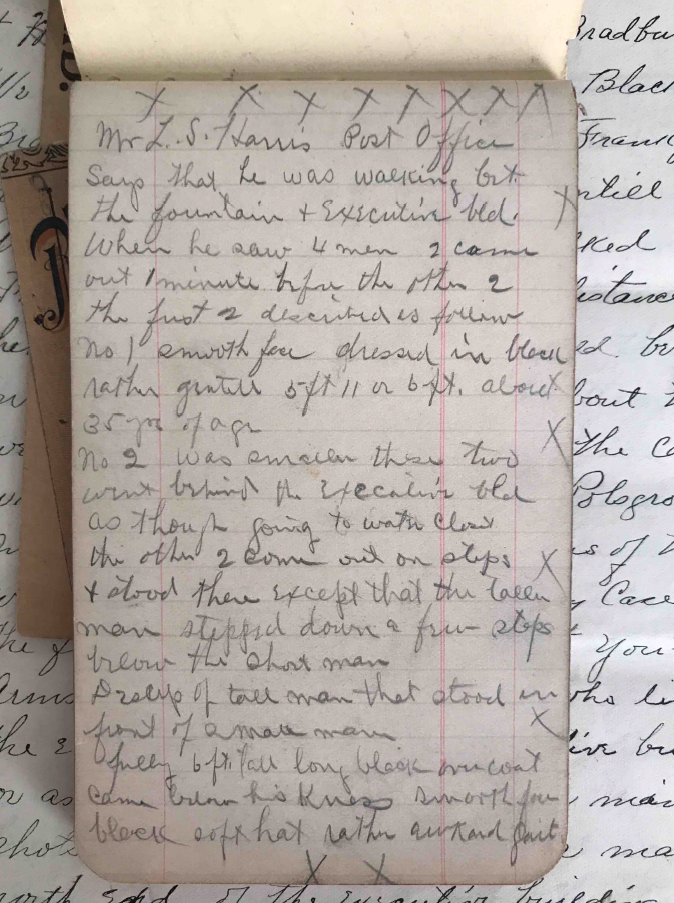 x x x x x x x x
Mr L. S. Harris Post Office
Says that he was walking bet
the fountain & Executive bld. x
When he saw 4 men 2 came
out 1 minute before the other 2
the first 2 described as follow
No 1 smooth face dressed in black
rather genteel 5ft 11 or 6 ft. about x
35 yrs of age x
No 2 was smaller these two
went behind the Executive bld
as though going to water closet
the other 2 come out on steps x
& stood there except that the taller
man stepped down a few steps
below the short man
Desctp of tall man that stood in
front of small man x
fully 6 ft tall long black overcoat
came below his Knees smooth face
black soft hat rather awkard gait.
x x
Bradbu
Black
Frank
ntiel
ked
istance
ed. be
bout t
the Ca
Polsgro
s of
Case
You
who li
ive bu
mai
ma
north end of the executive building
the E
or as
shots
Arms